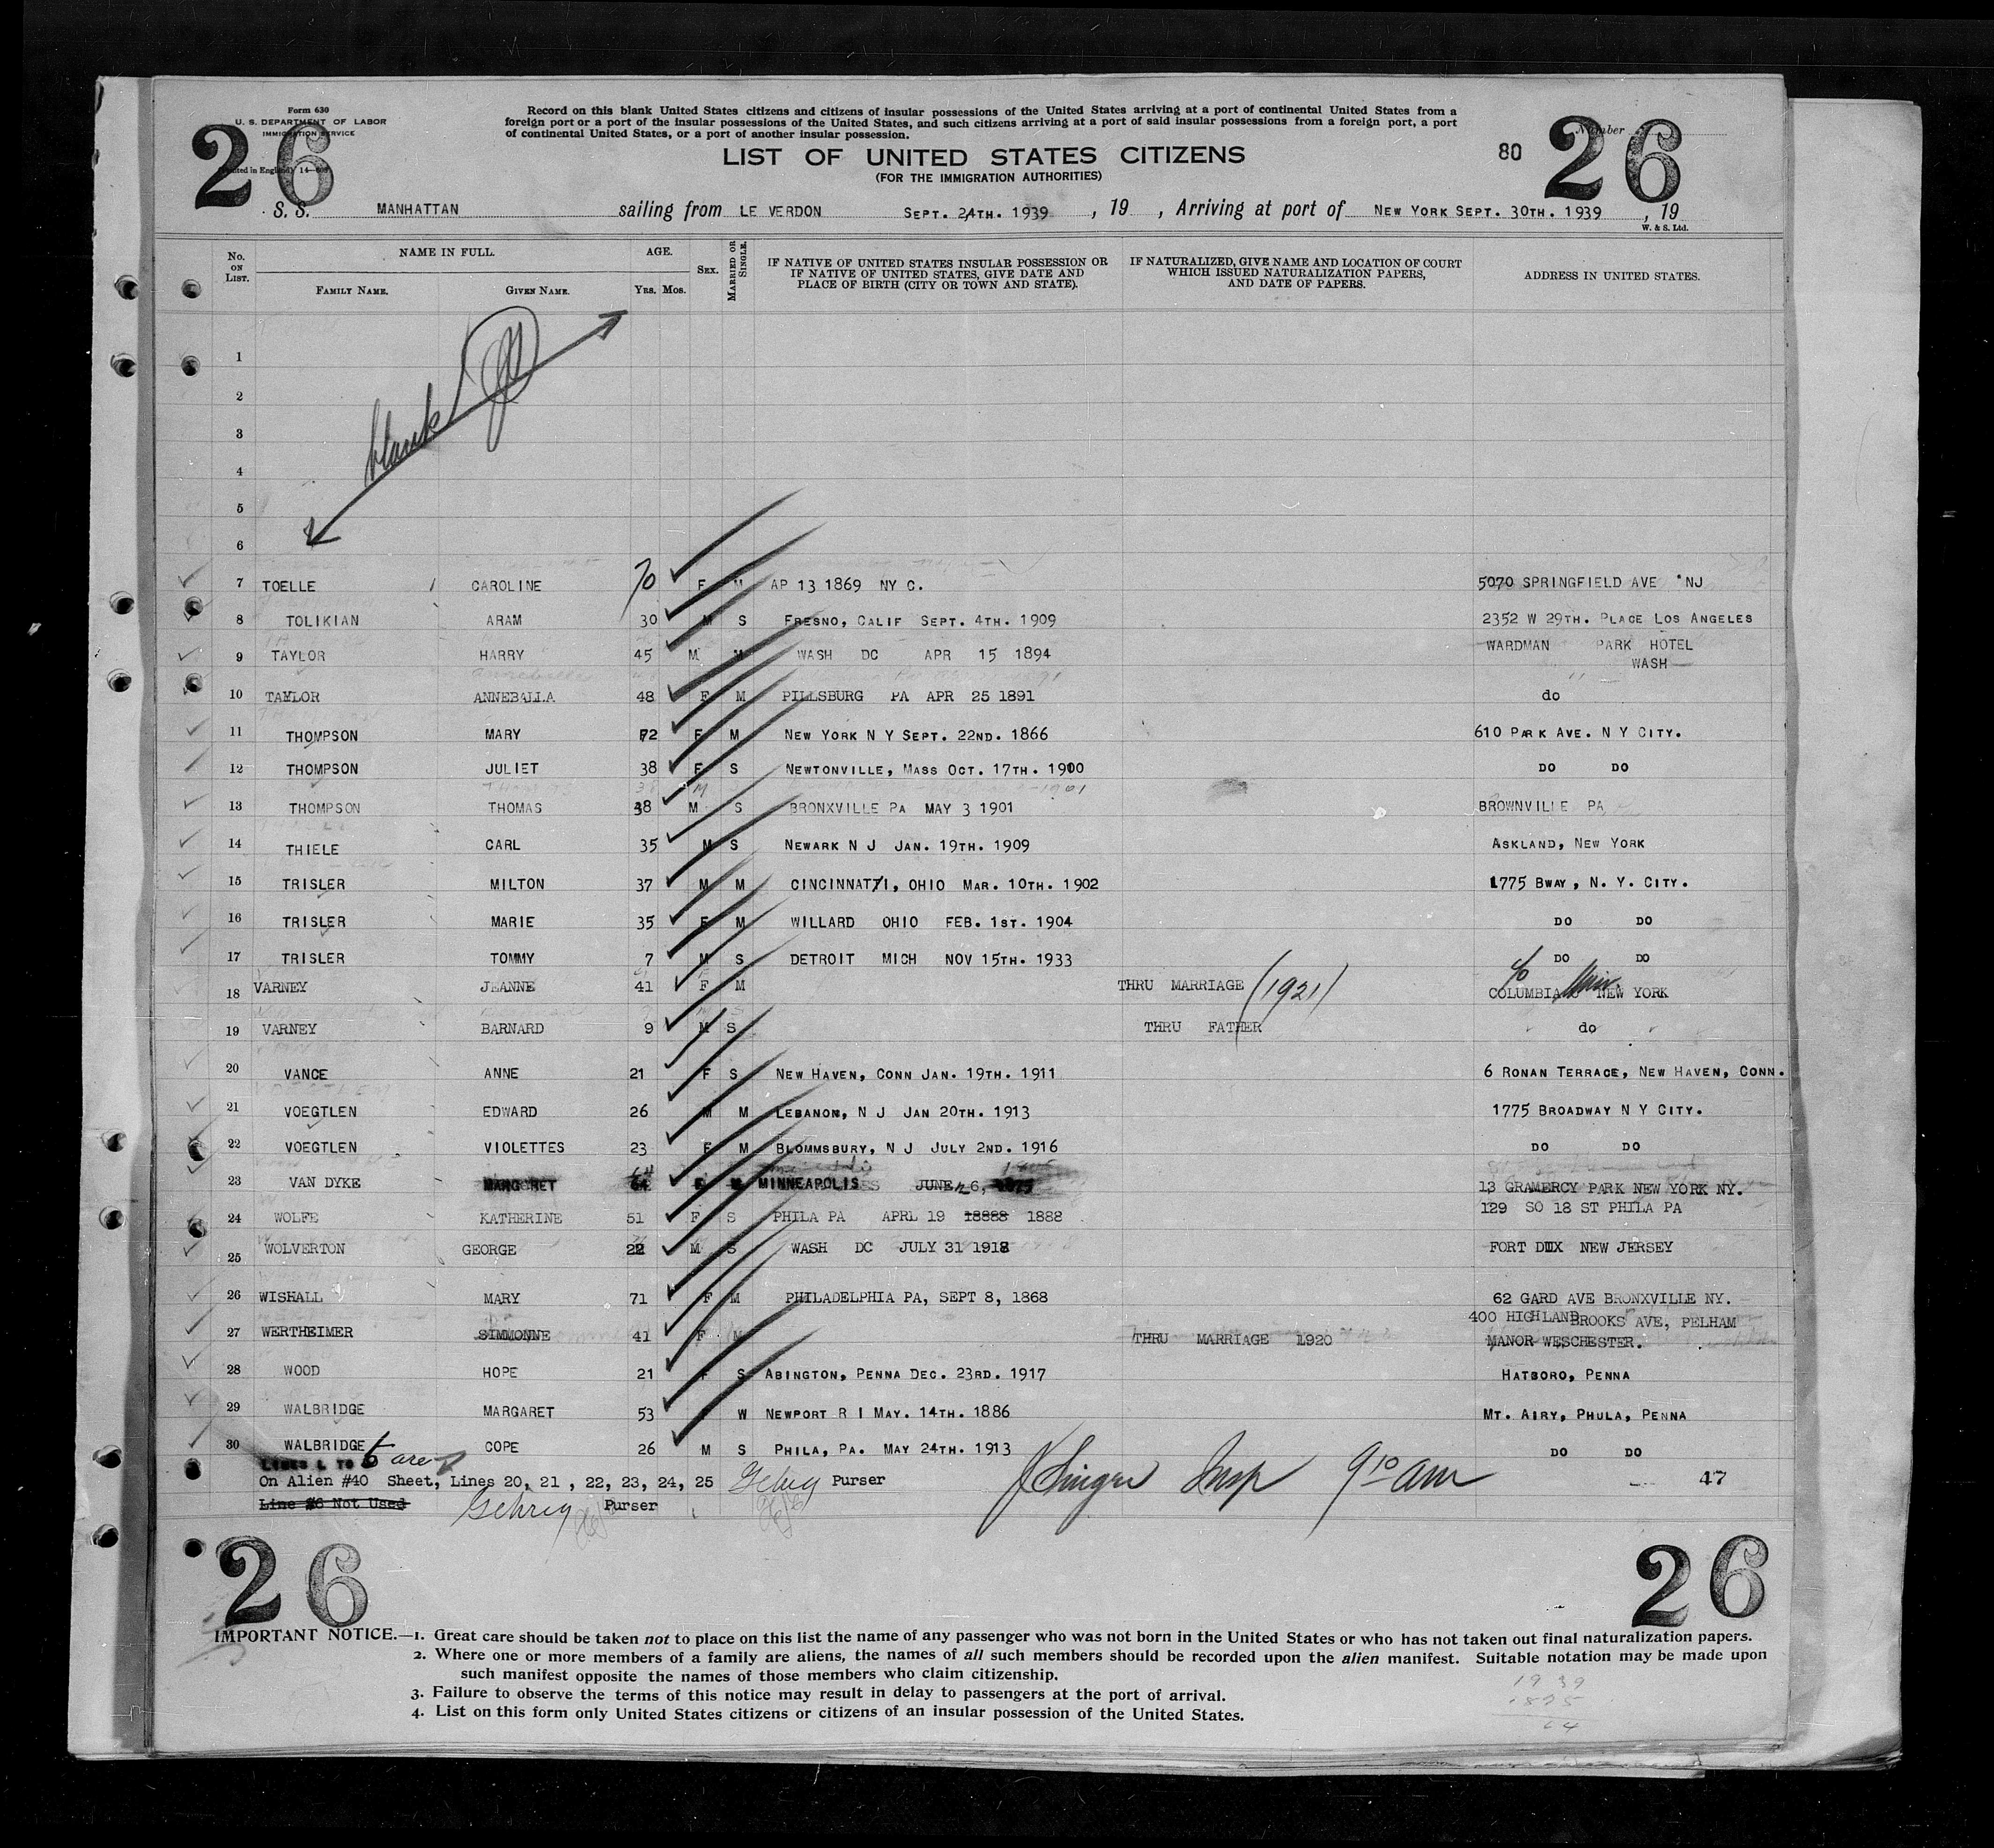 Form 630
U. S. DEPARTMENT OF LABOR
IMMIGRATION SERVICE
26
Record on this blank United States citizens and citizens of insular possessions of the United States arriving at a port of continental United States from a
foreign port or a port of the insular possessions of the United States, and such citizens arriving at a port of said insular possessions from a foreign port, a port
of continental United States, or a port of another insular possession.
Number
LIST OF UNITED STATES CITIZENS 80 26
(FOR THE IMMIGRATION AUTHORITIES)
S. S. MANHATTAN sailing from LE VERDON SEPT. 24TH. 1939 , 19 , Arriving at port of NEW YORK SEPT. 30TH. 1939 , 19
W. & S. Ltd.
No. ON LIST. NAME IN FULL. FAMILY NAME. GIVEN NAME. AGE. YRS. MOS. SEX. MARRIED OR SINGLE. IF NATIVE OF UNITED STATES INSULAR POSSESSION OR IF NATIVE OF UNITED STATES, GIVE DATE AND PLACE OF BIRTH (CITY OR TOWN AND STATE). IF NATURALIZED, GIVE NAME AND LOCATION OF COURT WHICH ISSUED NATURALIZATION PAPERS, AND DATE OF PAPERS. ADDRESS IN UNITED STATES.
1
2
3
blank
4
5
6
7 TOELLE CAROLINE 70 F M AP 13 1869 NY C. 5070 SPRINGFIELD AVE NJ
8 TOLIKIAN ARAM 30 M S FRESNO, CALIF SEPT. 4TH. 1909 2352 W 29TH. PLACE LOS ANGELES
9 TAYLOR HARRY 45 M M WASH DC APR 15 1894 WARDMAN PARK HOTEL
WASH
10 TAYLOR ANNEBALLA 48 F M PILLSBURG PA APR 25 1891 do
11 THOMPSON MARY 72 F M NEW YORK N Y SEPT. 22ND. 1866 610 PARK AVE. N Y CITY.
12 THOMPSON JULIET 38 F S NEWTONVILLE, MASS OCT. 17TH. 1900 DO DO
13 THOMPSON THOMAS 38 M S BRONXVILLE PA MAY 3 1901 BROWNVILLE PA
14 THIELE CARL 35 M S NEWARK N J JAN. 19TH. 1909 ASKLAND, NEW YORK
15 TRISLER MILTON 37 M M CINCINNATTI, OHIO MAR. 10TH. 1902 1775 BWAY, N. Y. CITY.
16 TRISLER MARIE 35 F M WILLARD OHIO FEB. 1ST. 1904 DO DO
17 TRISLER TOMMY 7 M S DETROIT MICH NOV 15TH. 1933 DO DO
18 VARNEY JEANNE 41 F M THRU MARRIAGE (1921) c/o COLUMBIA Univ. NEW YORK
19 VARNEY BARNARD 9 M S THRU FATHER do
20 VANCE ANNE 21 F S NEW HAVEN, CONN JAN. 19TH. 1911 6 RONAN TERRACE, NEW HAVEN, CONN.
21 VOEGTLEN EDWARD 26 M M LEBANON, N J JAN 20TH. 1913 1775 BROADWAY N Y CITY.
22 VOEGTLEN VIOLETTES 23 F M BLOMMSBURY, N J JULY 2ND. 1916 DO DO
23 VAN DYKE MARGRET 64 F M MINNEAPOLIS JUNE 26, 13 GRAMERCY PARK NEW YORK NY.
24 WOLFE KATHERINE 51 F S PHILA PA APRL 19 18888 1888 129 SO 18 ST PHILA PA
25 WOLVERTON GEORGE 22 M S WASH DC JULY 31 1918 FORT DIX NEW JERSEY
26 WISHALL MARY 71 F M PHILADELPHIA PA, SEPT 8, 1868 62 GARD AVE BRONXVILLE NY.
27 WERTHEIMER SIMMONNE 41 F M THRU MARRIAGE 1920 400 HIGHLANDBROOKS AVE, PELHAM
MANOR WESCHESTER.
28 WOOD HOPE 21 F S ABINGTON, PENNA DEC. 23RD. 1917 HATBORO, PENNA
29 WALBRIDGE MARGARET 53 F W NEWPORT R I MAY. 14TH. 1886 MT. AIRY, PHULA, PENNA
30 WALBRIDGE COPE 26 M S PHILA, PA. MAY 24TH. 1913 DO DO
LINES 1 TO 6 are
On Alien #40 Sheet, Lines 20, 21, 22, 23, 24, 25 Gehrig Purser J Singer Insp 9 10 am 47
Line #6 Not Used Gehrig Purser
26 26
IMPORTANT NOTICE.—1. Great care should be taken not to place on this list the name of any passenger who was not born in the United States or who has not taken out final naturalization papers.
2. Where one or more members of a family are aliens, the names of all such members should be recorded upon the alien manifest. Suitable notation may be made upon
such manifest opposite the names of those members who claim citizenship.
3. Failure to observe the terms of this notice may result in delay to passengers at the port of arrival.
4. List on this form only United States citizens or citizens of an insular possession of the United States.
1939
1875
64